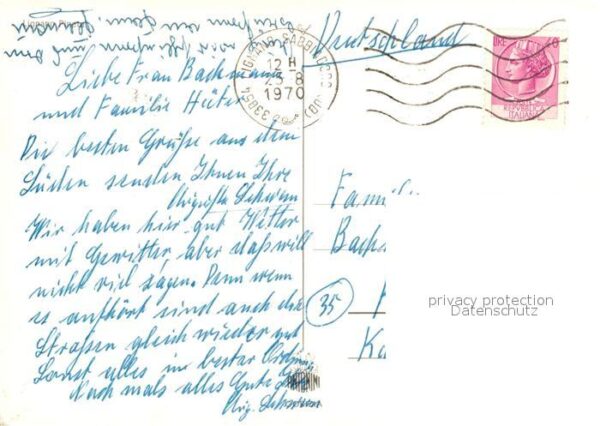 Liebe Frau Bachmann
und Familie Hüter
Die besten Grüße aus dem
Süden senden Ihnen Ihre
Auguste Schwan
Wir haben hier gut Wetter
mit Gewitter, aber daß will
nicht viel sagen. Denn wenn
es aufhört sind auch die
Straßen gleich wieder gut
Sonst alles in bester Ordnung
Nochmals alles Gute
Aug. Schwan
und den
Deutschland
33054 LIGNANO SABBIADORO (UD)
12 H
23-8
1970
LIRE 40
REPUBBLICA
ITALIANA
Famil
Bach
35
Ka
privacy protection
Datenschutz